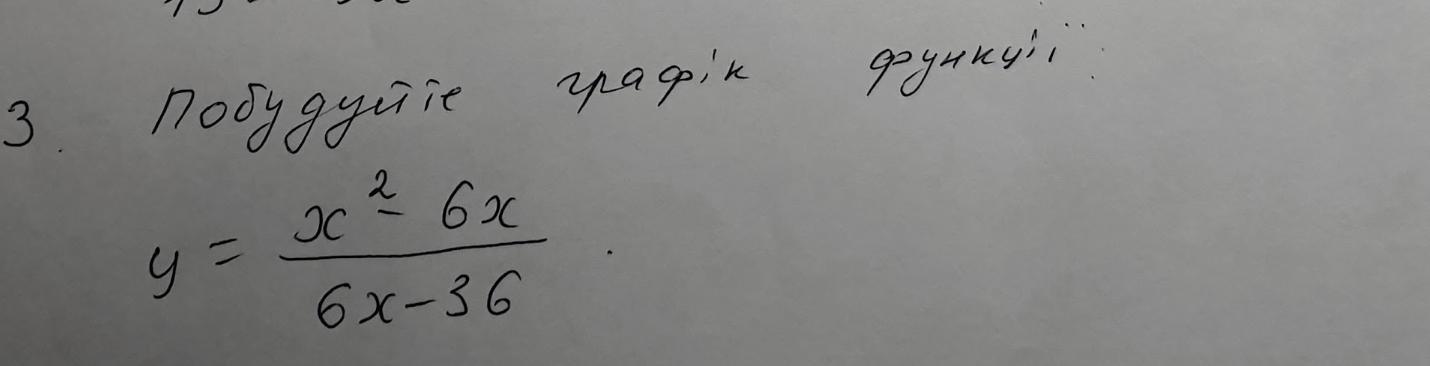 3. Побудуйте графік функції.
y = \frac{x^2 - 6x}{6x - 36}.